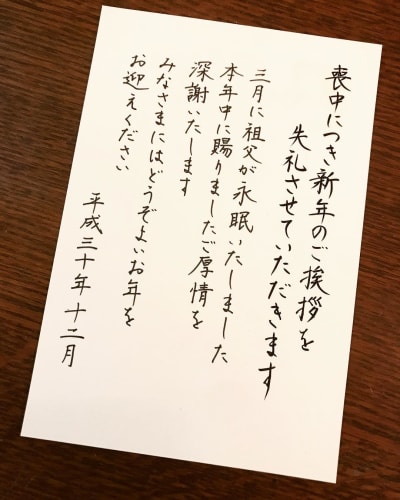 喪中につき新年のご挨拶を
失礼させていただきます
三月に祖父が永眠いたしました
本年中に賜りましたご厚情を
深謝いたします
みなさまにはどうぞよいお年を
お迎えください
平成三十年十二月